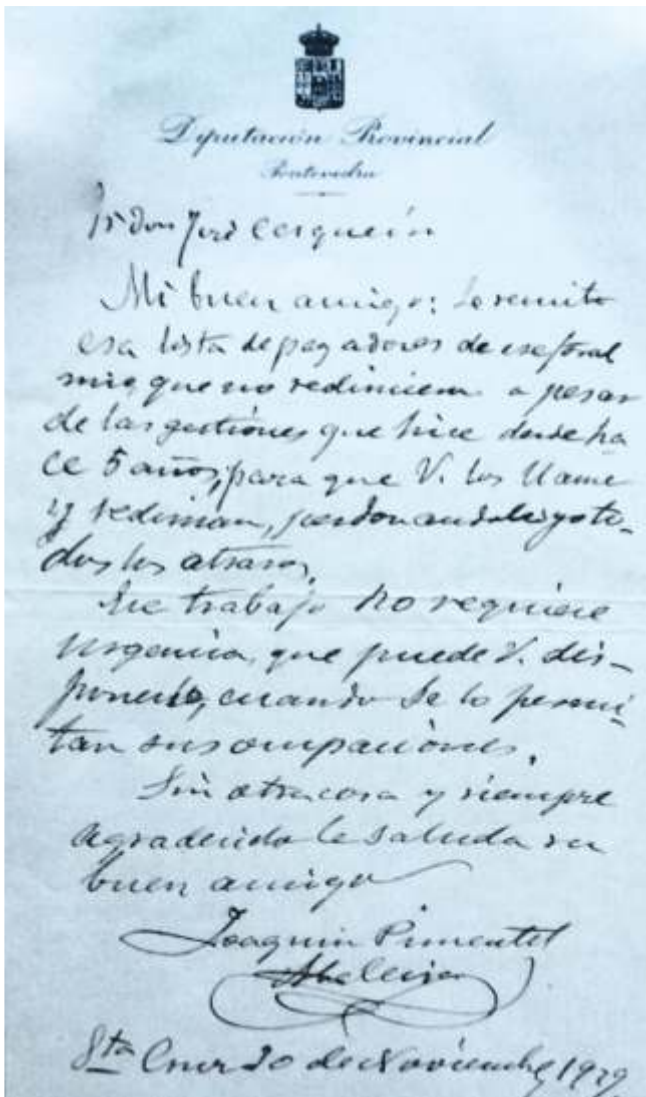 Diputación Provincial
Pontevedra
Sr Don José Cerqueira
Mi buen amigo: Le remito
esa lista de pagadores de ese foral
mio, que no redimieron a pesar
de las gestiones que hice desde ha
ce 5 años, para que V. los llame
y rediman, perdonandoles yo to-
dos los atrasos.
Ese trabajo no requiere
urgencia, que puede V. dis-
ponerlo, cuando se lo permi-
tan sus ocupaciones.
Sin otra cosa y siempre
agradecido le saluda su
buen amigo
Joaquin Pimentel
Sta Cruz 30 de Noviembre 1929